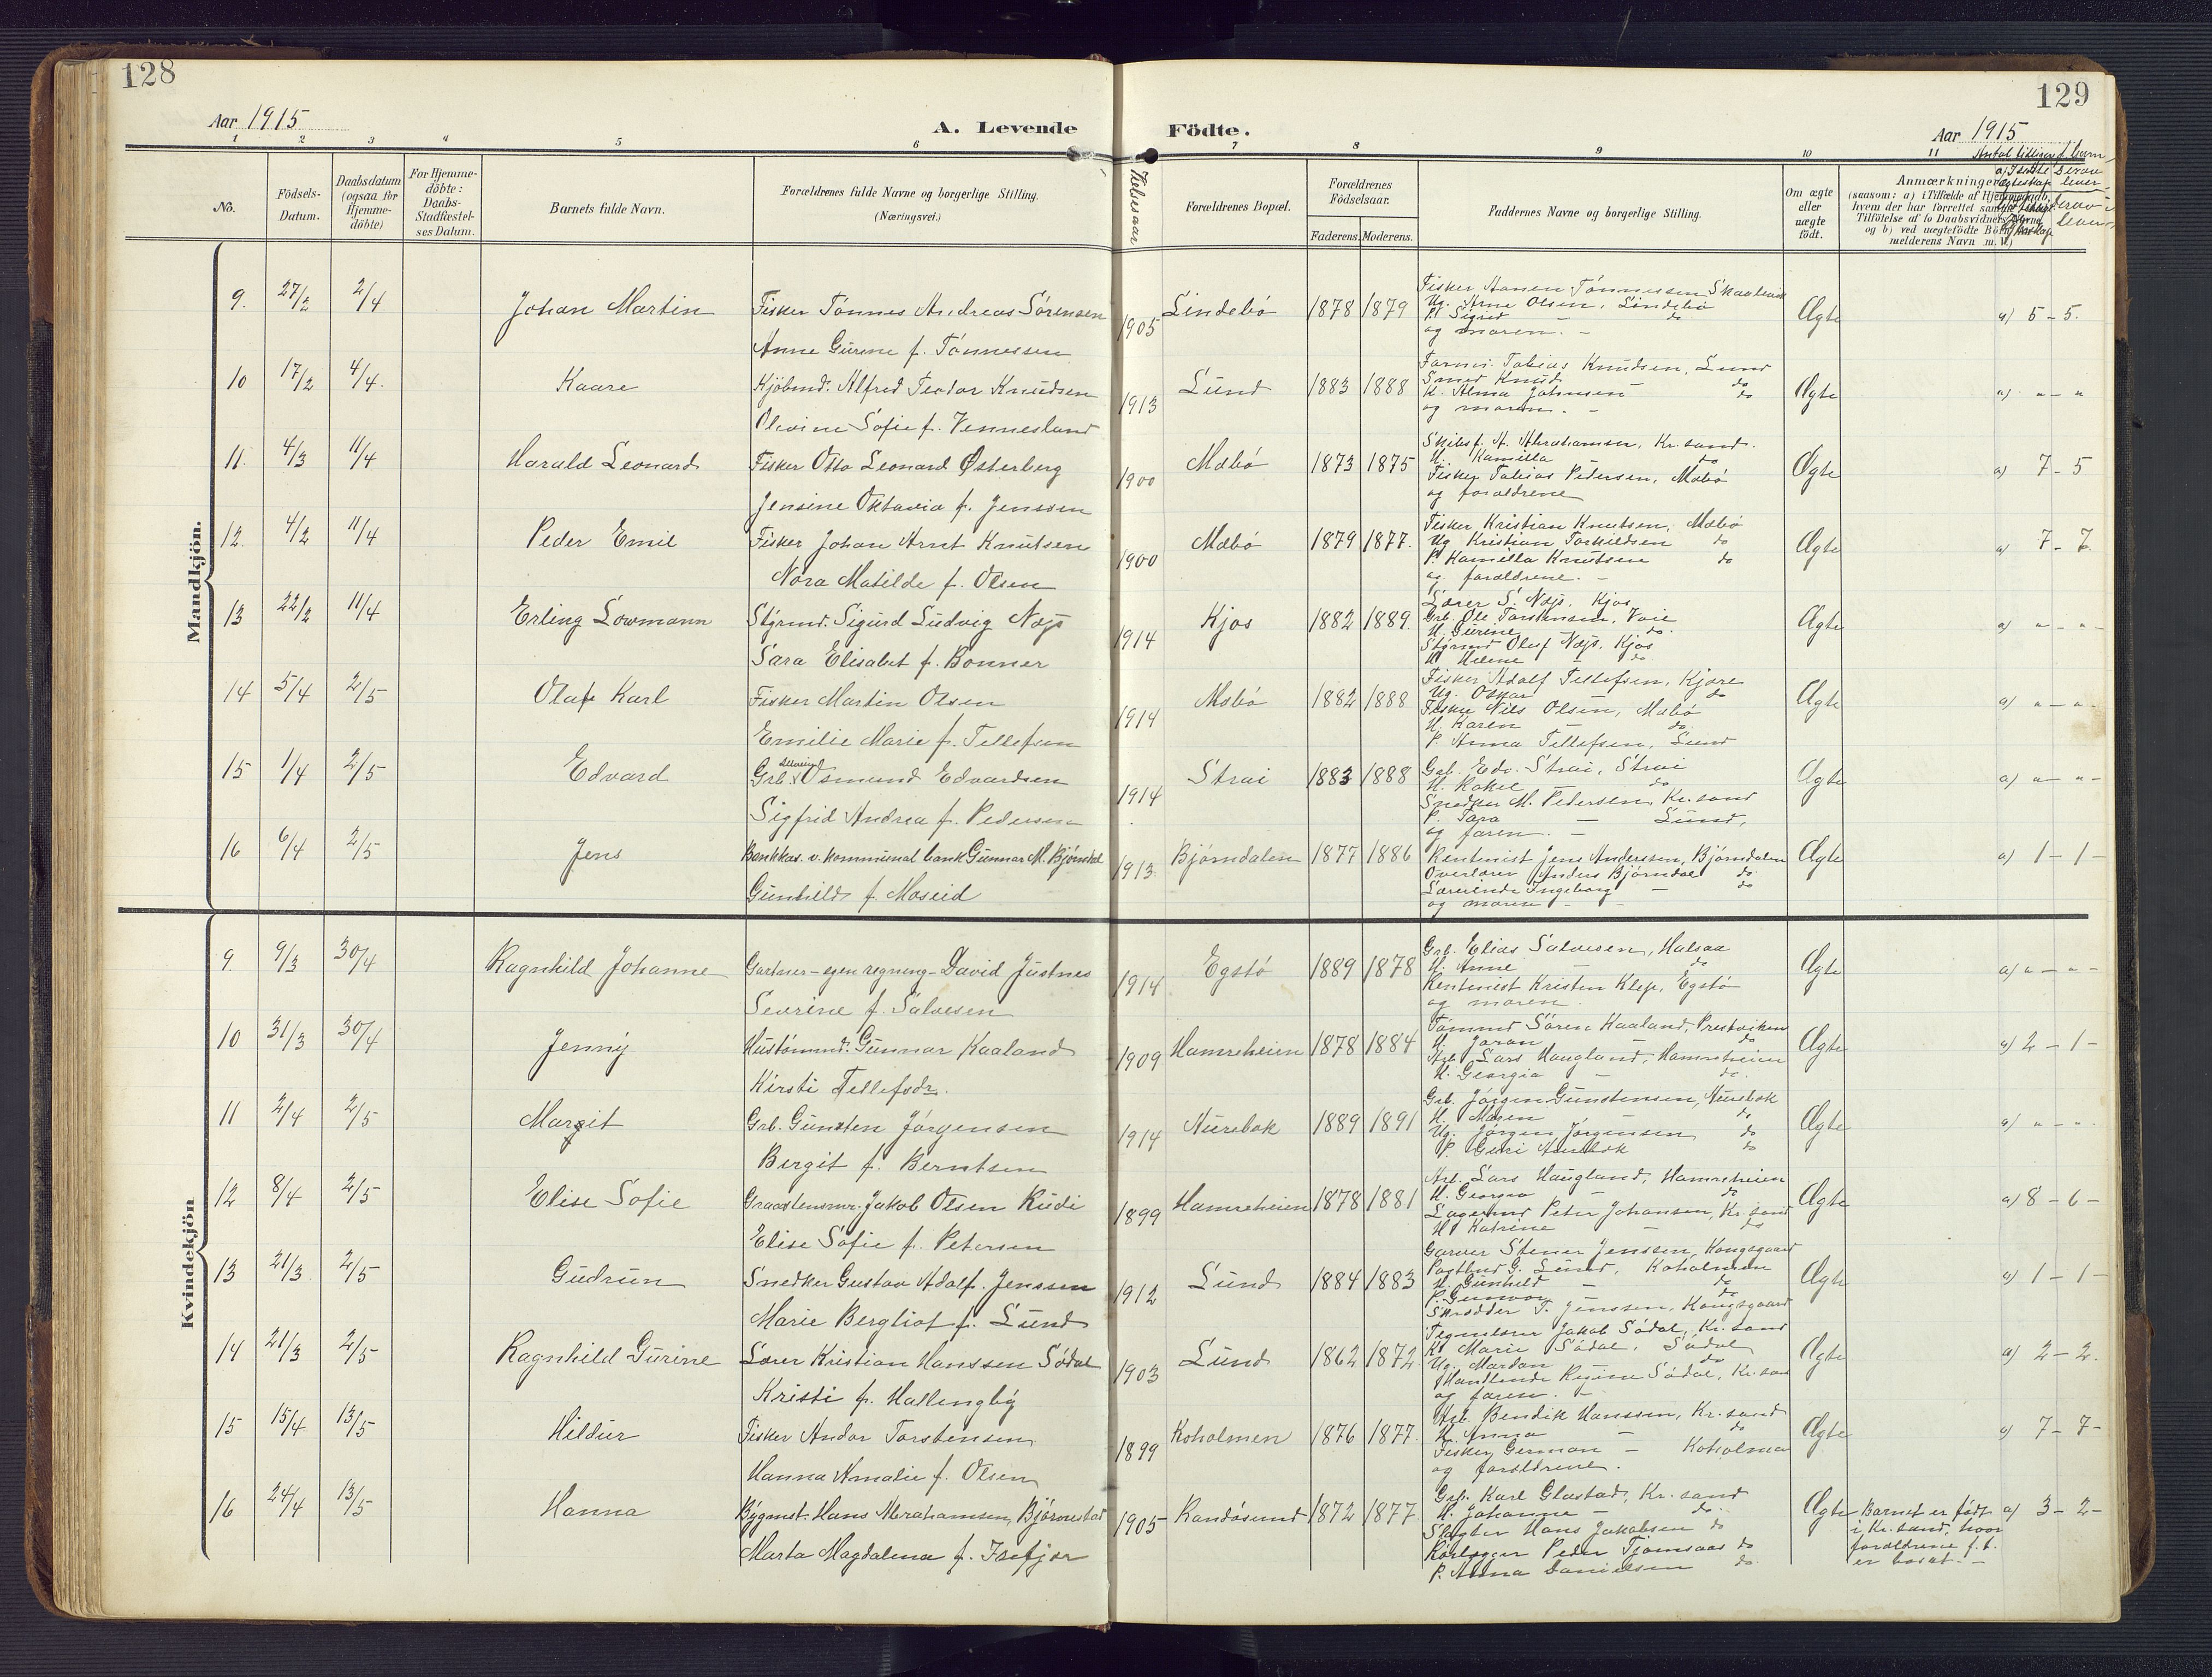 128
129
Aar 1915
A. Levende
Födte.
Aar 1915
1 2 3 4 5 6 7 8 9 10 11
No.
Födsels-Datum.
Daabsdatum (ogsaa for Hjemme-döbte)
For Hjemme-döbte: Daabs-Stadfæstel-ses Datum.
Barnets fulde Navn.
Forældrenes fulde Navne og borgerlige Stilling. (Næringsvei.)
Forældrenes Bopæl.
Forældrenes Födselsaar.
Faderens. Moderens.
Faddernes Navne og borgerlige Stilling.
Om ægte eller uægte født.
Anmærkninger
Mandkjön.
9. 27/2 2/4 Johan Martin Fisker Tönnes Andreas Sörensen 1905 Lindebö 1878 1879 Ægte a) 5 - 5.
Anne Gurine f. Tönnessen
Ug. Arne Olsen, Lindebö
P. Sigrid do
og moren.
10 17/2 4/4. Kaare Kjöbmd. Alfred Teodor Knudsen 1913 Lund 1883 1888 Tobias Knudsen, Lund Ægte a) " - "
Olevine Sofie f. Vennesland
Smed Knud do
K. Alma Johnsen do
og moren.
11. 4/3 11/4 Harald Leonard Fisker Otto Leonard Østerberg 1900 Mæbö 1873 1875 Skibsf. A. Abrahamsen, Kr.sand. Ægte a) 7 - 5
Jensine Oktavia f. Jenssen
H. Kamilla do
Fisker Tobias Pedersen, Mæbö
og forældrene
12. 4/2 11/4 Peder Emil Fisker Johan Arnt Knutsen 1900 Mæbö 1879 1877. Fisker Kristian Knutsen, Mæbö Ægte a) 7 - 7.
Nora Matilde f. Olsen
Ug Kristian Torkildsen do
P. Kamilla Knutsen do
og forældrene.
13 22/2 11/4 Erling Lowmann Styrmd. Sigurd Ludvig Næss 1914 Kjos 1882 1889. Lærer S. Næss, Kjos Ægte a) " - "
Sara Elisabet f. Bonner
Grb. Ole Torstensen, Vaie
H. Gurine do.
Styrmd Oluf Næss, Kjos
H Helene do
14 5/4 2/5 Olaf Karl Fisker Martin Olsen 1914 Mæbö 1882 1888 Fisker Adolf Tellefsen, Kjære Ægte a) " - "
Emilie Marie f. Tellefsen
Ug. Oskar do
Fisker Nils Olsen, Mæbö
H. Karen do
P. Anna Tellefsen, Lund
15 1/4 2/5 Edvard Grb. Osmund Edvardsen 1914 Strai 1883 1888 Grb. Edv. Strai, Strai Ægte a) " - "
Sigfrid Andrea f. Pedersen
H. Rakel do
Snedker M. Pedersen, Kr.sand
P. Tara Lund,
og faren.
16 6/4 2/5 Jens Bankkas. v. kommunal bank Gunnar M. Bjørndal 1913. Bjørndalen 1877 1886 Rentenist Jens Anderssen, Bjørndalen Ægte a) 1 - 1 -
Gunhild f. Moseid
Overlærer Anders Bjørndal do
Lærerinde Ingeborg do
og moren
Kvindekjön
9. 9/3 30/4 Ragnhild Johanne Gartner - egen regning - David Justnes 1914 Egstö 1889 1878 Grb. Elias Salvesen, Halsaa Ægte a) " - "
Severine f. Salvesen
H. Anne do
Rentenist Kristen Klep, Egstö
og moren.
10 31/3 30/4 Jenny Hustömmd. Gunnar Kaaland 1909 Hamreheien 1878 1884 Tömmd Sören Kaaland, Prestviken Ægte a) 2 - 1 -
Kirsti Tellefsdr.
H. Joran do
Arb Lars Haugland, Hamreheien
H. Georgia do.
11 2/4 2/5 Margit Grb. Gunsten Jörgensen 1914 Aurebæk 1889 1891 Grb. Jörgen Gunstensen, Aurebæk Ægte a) " - "
Bergit f. Berntsen
H. Maren do
Ug. Jörgen Jörgensen do
P. Guri Aurebæk do
12 8/4 2/5 Elise Sofie Graastensmr. Jakob Olsen Rudi 1899 Hamreheien 1878 1881 Arb. Lars Haugland, Hamreheien Ægte a) 8 - 6 -
Elise Sofie f. Petersen
H. Georgia do
Lagermd Peter Johansen, Kr sand
H. Katrine do
13 21/3 2/5 Gudrun Snedker Gustav Adolf Jenssen 1912 Lund 1884 1883 Garver Stener Jenssen, Kongsgaard Ægte a) 1 - 1 -
Marie Bergliot f. Lund
Postbud G. Lund, Koholmen
H. Gunhild do
P. Gunvor do
Skrædder T. Jenssen, Kongsgaard
14 21/3 2/5 Ragnhild Gurine Lærer Kristian Hanssen Södal 1903 Lund 1862 1872 Tegnelærer Jakob Södal, Kr. sand Ægte a) 2 - 2.
Kristi f. Hallingby
K. Marie Södal, Södal
Ug. Mardon do
Handlende Regine Södal, Kr. sand
og faren.
15 15/4 13/5 Hildur Fisker Andor Torstensen 1899 Koholmen 1876 1877. Arb. Bendik Hanssen, Kr. sand Ægte a) 7 - 7 -
Hanna Amalie f. Olsen
H. Anna do
Fisker German Koholmen
og forældrene.
16 24/4 13/5 Hanna Bygmst. Hans Abrahamsen Bjørnestad 1905 Randösund 1872 1877. Karl Glastad, Kr. sand Ægte Barnet er födt i Kr. sand, hvor forældrene f. t. er bosat. a) 3 - 2 -
Marta Magdalena f. Isefjær
H. Johanne do.
Slagter Hans Jakobsen do
Peder Tjomsaas do
P. Anna Danielsen do